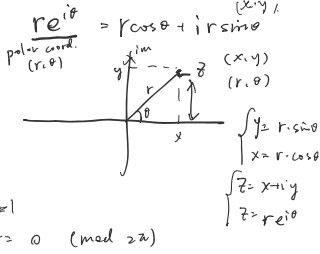 re^{iθ} = r cosθ + i r sinθ
(x,y)
polar coord.
(r,θ)
im
y
z
(x,y)
(r,θ)
r
θ
x
{ y = r·sinθ
x = r·cosθ
{ z = x+iy
z = re^{iθ}
=1
= 0 (mod 2π)